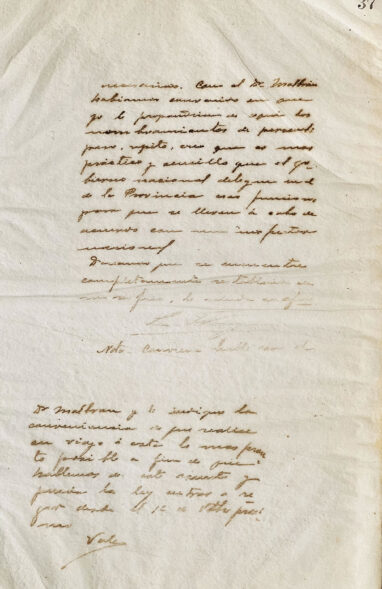 necesarios. Con el Dr Malbrán
habíamos convenido en que
yo le propondría en seguida los
nombramientos de personal
pero, repito, creo que es mas
práctico y sencillo que el go-
bierno nacional delegue en el
de la Provincia esas funciones
para que se lleven á cabo de
acuerdo con un inspector
nacional
Deseando que se encuentre
completamente restablecido
lo saluda
Nota: Conviene hable con el
Dr Malbran y le indique la
conveniencia de que realice
un viaje á esta lo mas pron-
to posible a fin de que
hablemos de este asunto y
pueda la ley entrar a re-
gir desde el 1º de próxi-
mo
Vale